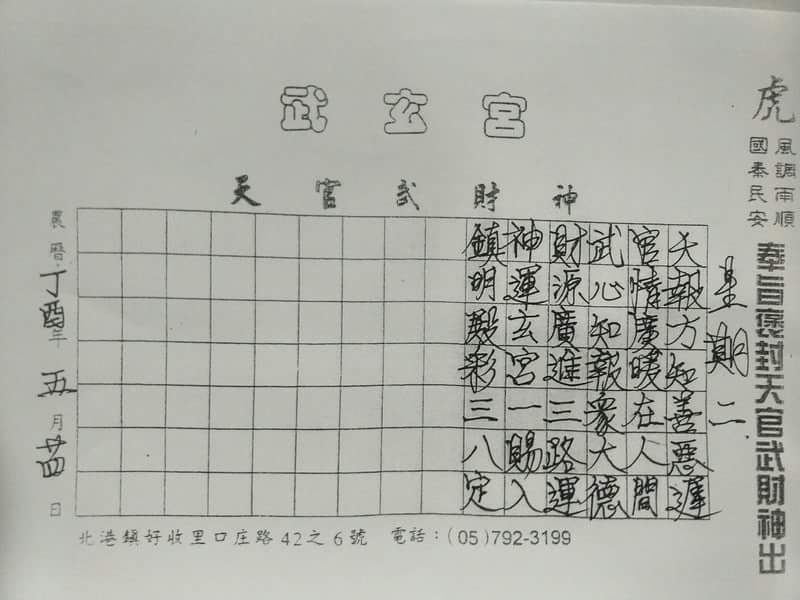 武玄宮
天官武財神
虎
風調雨順
國泰民安
奉旨褒封天官武財神出
星期二
天報方知善惡遲
官情廣暖在人間
武心知報眾大德
財源廣進三路運
神運玄宮一賜入
鎮明殿彩三八定
農曆丁酉年五月廿四日
北港鎮好收里口庄路42之6號 電話：(05)792-3199